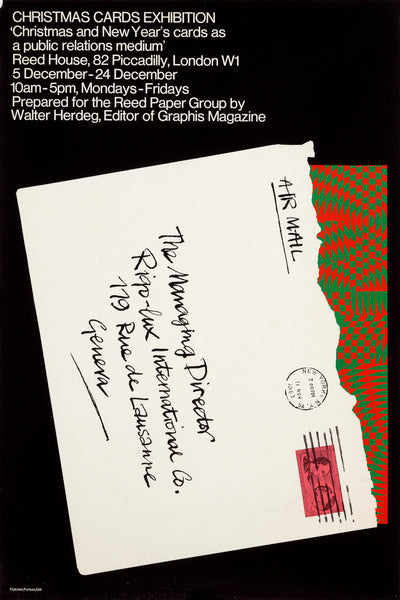 CHRISTMAS CARDS EXHIBITION
‘Christmas and New Year's cards as
a public relations medium’
Reed House, 82 Piccadilly, London W1
5 December-24 December
10am-5pm, Mondays-Fridays
Prepared for the Reed Paper Group by
Walter Herdeg, Editor of Graphis Magazine
AIR MAIL
The Managing Director
Rigo-lux International Co.
179 Rue de Lausanne
Geneva
NEW YORK, N.Y.
7 00PM
11 NOV
1963
Fletcher/Forbes/Gill